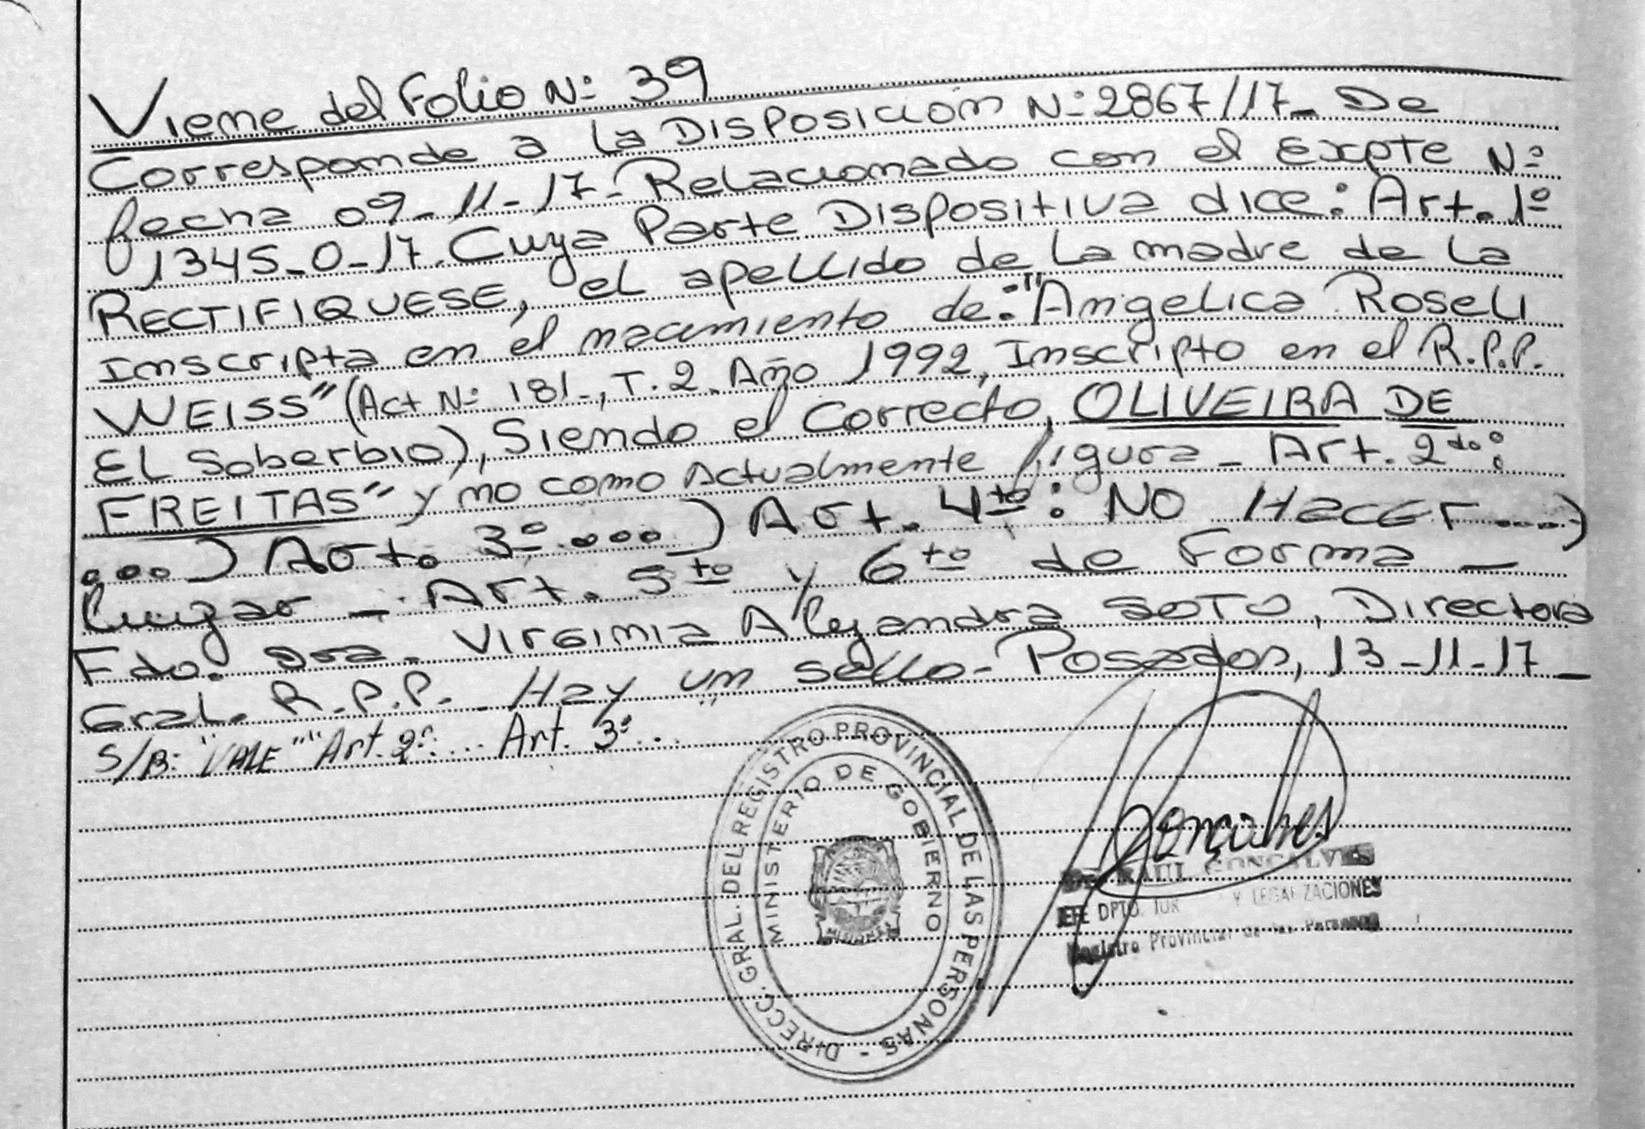 Viene del Folio Nº 39
Corresponde a La Disposición Nº 2867/17_ De
fecha 09-11-17- Relacionado con el Expte Nº
1345-0-17. Cuya Parte Dispositiva dice: Art. 1º
RECTIFIQUESE, el apellido de La madre de La
Inscripta en el nacimiento de: "Angelica Roseli
WEISS" (Act Nº 181-, T. 2. Año 1992, Inscripto en el R.P.P.
El Soberbio), Siendo el Correcto, OLIVEIRA DE
FREITAS" y no como Actualmente figura - Art. 2do:
...) Art. 3º ...) Art. 4to: NO Hacer ....)
Lugar - Art. 5to y 6to de Forma -
Fdo. Dra. Virginia Alejandra SOTO, Directora
Gral. R.P.P. Hay un sello- Posadas, 13-11-17_
S/B: "VALE" "Art. 2º: ... Art. 3º ...
DIRECC. GRAL. DEL REGISTRO PROVINCIAL DE LAS PERSONAS -
MINISTERIO DE GOBIERNO
MISIONES
Gonçalves
RAUL GONÇALVES
JEFE DPTO. JUR Y LEGALIZACIONES
Registro Provincial de las Personas